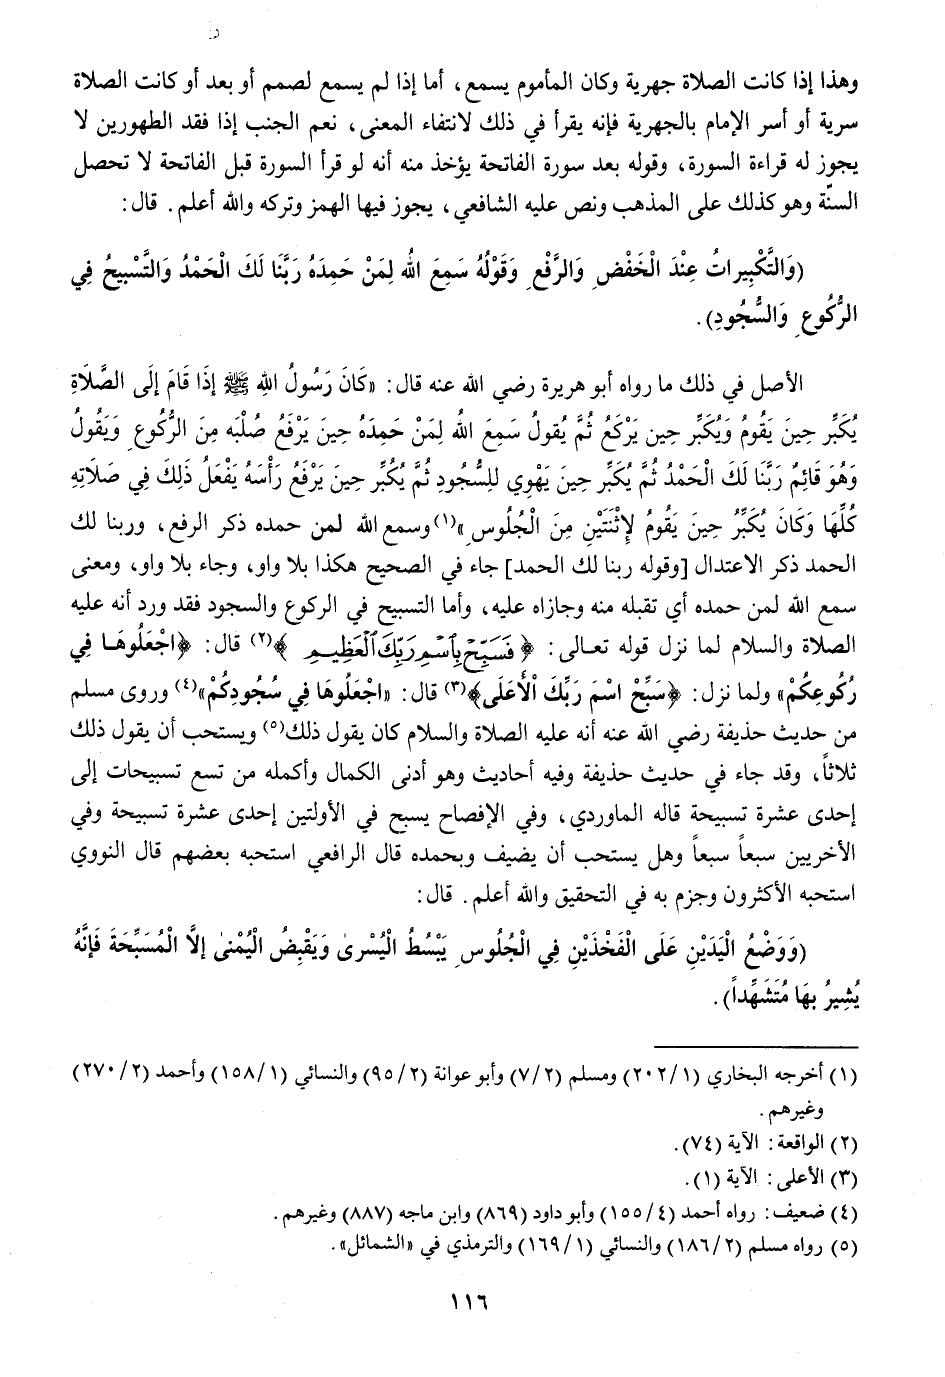 وهذا إذا كانت الصلاة جهرية وكان المأموم يسمع، أما إذا لم يسمع لصمم أو بعد أو كانت الصلاة
سرية أو أسر الإمام بالجهرية فإنه يقرأ في ذلك لانتفاء المعنى، نعم الجنب إذا فقد الطهورين لا
يجوز له قراءة السورة، وقوله بعد سورة الفاتحة يؤخذ منه أنه لو قرأ السورة قبل الفاتحة لا تحصل
السنّة وهو كذلك على المذهب ونص عليه الشافعي، يجوز فيها الهمز وتركه والله أعلم. قال:
(وَالتَّكْبِيرَاتُ عِنْدَ الْخَفْضِ وَالرَّفْعِ وَقَوْلُهُ سَمِعَ اللهُ لِمَنْ حَمِدَهُ رَبَّنَا لَكَ الْحَمْدُ وَالتَّسْبِيحُ فِي
الرُّكُوعِ وَالسُّجُودِ).
الأصل في ذلك ما رواه أبو هريرة رضي الله عنه قال: «كَانَ رَسُولُ اللهِ ﷺ إِذَا قَامَ إِلَى الصَّلَاةِ
يُكَبِّر حِينَ يَقُومُ وَيُكَبِّر حِين يَرْكَعُ ثُمَّ يُقولُ سَمِعَ اللهُ لِمَنْ حَمِدَهُ حِينَ يَرْفَعُ صُلْبَه مِنَ الرُّكُوعِ وَيَقُولُ
وَهُوَ قَائِمٌ رَبَّنَا لَكَ الْحَمْدُ ثُمَّ يُكَبِّر حِينَ يَهْوِي لِلسُّجُودِ ثُمَّ يُكَبِّر حِينَ يَرْفَعُ رَأْسَهُ يَفْعَلُ ذَلِكَ فِي صَلَاتِهِ
كُلِّهَا وَكَانَ يُكَبِّرُ حِينَ يَقُومُ لِإِثْنَتَيْنِ مِنَ الْجُلُوسِ»(١) وسمع الله لمن حمده ذكر الرفع، وربنا لك
الحمد ذكر الاعتدال [وقوله ربنا لك الحمد] جاء في الصحيح هكذا بلا واو، وجاء بلا واو، ومعنى
سمع الله لمن حمده أي تقبله منه وجازاه عليه، وأما التسبيح في الركوع والسجود فقد ورد أنه عليه
الصلاة والسلام لما نزل قوله تعالى: ﴿فَسَبِّحْ بِاسْمِ رَبِّكَ الْعَظِيمِ﴾(٢) قال: ﴿اجْعَلُوهَا فِي
رُكُوعِكُمْ» ولما نزل: ﴿سَبِّحْ اسْمَ رَبِّكَ الْأَعَلَى﴾(٣) قال: «اجْعَلُوهَا فِي سُجُودِكُمْ»(٤) وروى مسلم
من حديث حذيفة رضي الله عنه أنه عليه الصلاة والسلام كان يقول ذلك(٥) ويستحب أن يقول ذلك
ثلاثاً، وقد جاء في حديث حذيفة وفيه أحاديث وهو أدنى الكمال وأكمله من تسع تسبيحات إلى
إحدى عشرة تسبيحة قاله الماوردي، وفي الإفصاح يسبح في الأولتين إحدى عشرة تسبيحة وفي
الأخريين سبعاً سبعاً وهل يستحب أن يضيف وبحمده قال الرافعي استحبه بعضهم قال النووي
استحبه الأكثرون وجزم به في التحقيق والله أعلم. قال:
(وَوَضْعُ الْيَدَيْنِ عَلَى الْفَخْذَيْنِ فِي الْجُلُوسِ يَبْسُطُ الْيُسْرىٰ وَيَقْبِضُ الْيُمْنىٰ إلَّا الْمُسَبِّحَةَ فَإِنَّهُ
يُشِيرُ بِهَا مُتَشَهِّداً).
(١) أخرجه البخاري (٢٠٢/١) ومسلم (٧/٢) وأبو عوانة (٩٥/٢) والنسائي (١٥٨/١) وأحمد (٢٧٠/٢)
وغيرهم.
(٢) الواقعة: الآية (٧٤).
(٣) الأعلى: الآية (١).
(٤) ضعيف: رواه أحمد (١٥٥/٤) وأبو داود (٨٦٩) وابن ماجه (٨٨٧) وغيرهم.
(٥) رواه مسلم (١٨٦/٢) والنسائي (١٦٩/١) والترمذي في «الشمائل».
١١٦